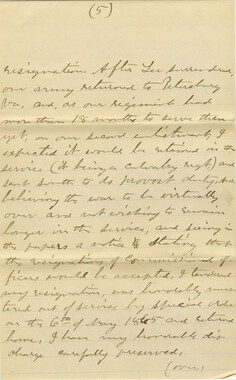 (5)
resignation. After Lee surrendered,
our army returned to Petersburg
Va. and, as our regiment had
more than 18 months to serve there
yet, on our second enlistment, I
expected it would be retained in the
service (it being a cavalry regt) and
sent south to do provost duty, and
believing the war to be virtually
over and not wishing to remain
longer in the service, and seeing in
the papers a notice stating that
the resignations of commissioned of-
ficers would be accepted, I tendered
my resignation, was honorably mus-
tered out of service by special order
on the 6th of May 1865 and returned
home, I have my honorable dis-
charge carefully preserved,
(over)